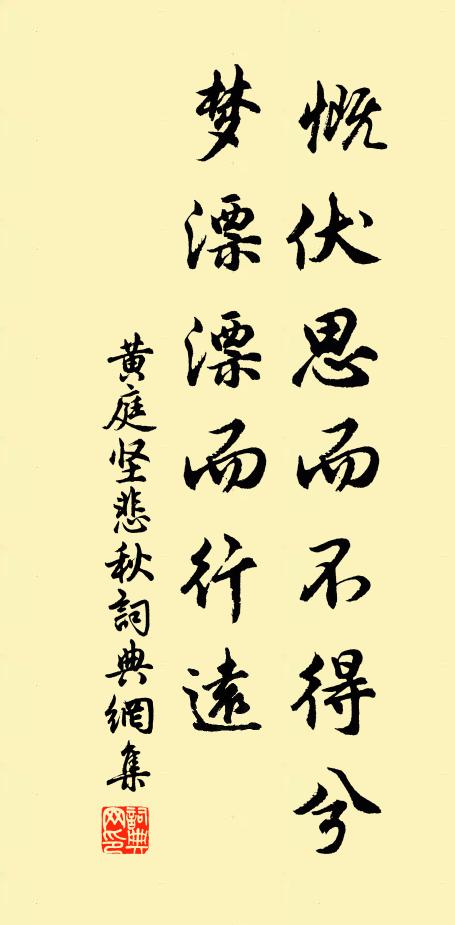 慨伏思而不得兮
梦漂漂而行遠
黄庭坚悲秋詞典網集
詞典
网印